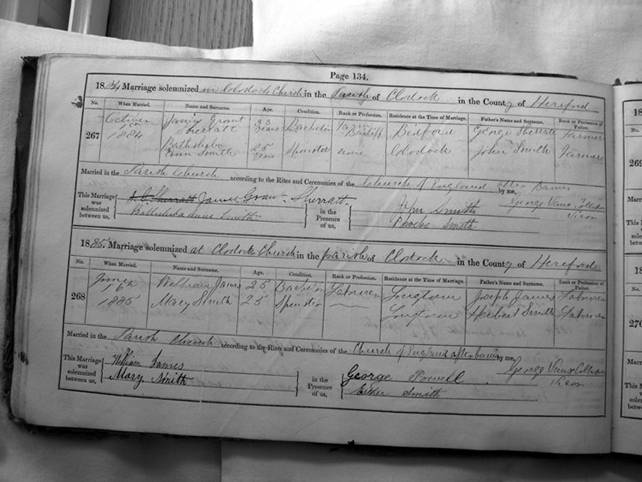 Page 134.
1884 Marriage solemnized in Clodock Church in the Parish of Clodock in the County of Hereford
No. When Married. Name and Surname. Age. Condition. Rank or Profession. Residence at the Time of Marriage. Father's Name and Surname. Rank or Profession of Father.
267 October 1884 James Grant Sherratt 23 years Bachelor Bedford George Sherratt Farmer
Ann Smith 25 years Spinster Clodock John Smith Farmer
Married in the Parish Church according to the Rites and Ceremonies of the Church of England after Banns by me,
This Marriage was solemnized between us, James Grant Sherratt in the Presence of us, Smith George
Anne Smith Phoebe Smith
1885 Marriage solemnized at Clodock Church in the parish of Clodock in the County of Hereford
No. When Married. Name and Surname. Age. Condition. Rank or Profession. Residence at the Time of Marriage. Father's Name and Surname. Rank or Profession of Father.
268 6 1885 William James 25 Bachelor Labourer Longtown Joseph James Labourer
Mary Smith 25 Spinster Longtown Herbert Smith Labourer
Married in the Parish Church according to the Rites and Ceremonies of the Church of England after banns by me,
This Marriage was solemnized between us, William James in the Presence of us, George Powell George
Mary Smith Smith
18
269
18
270